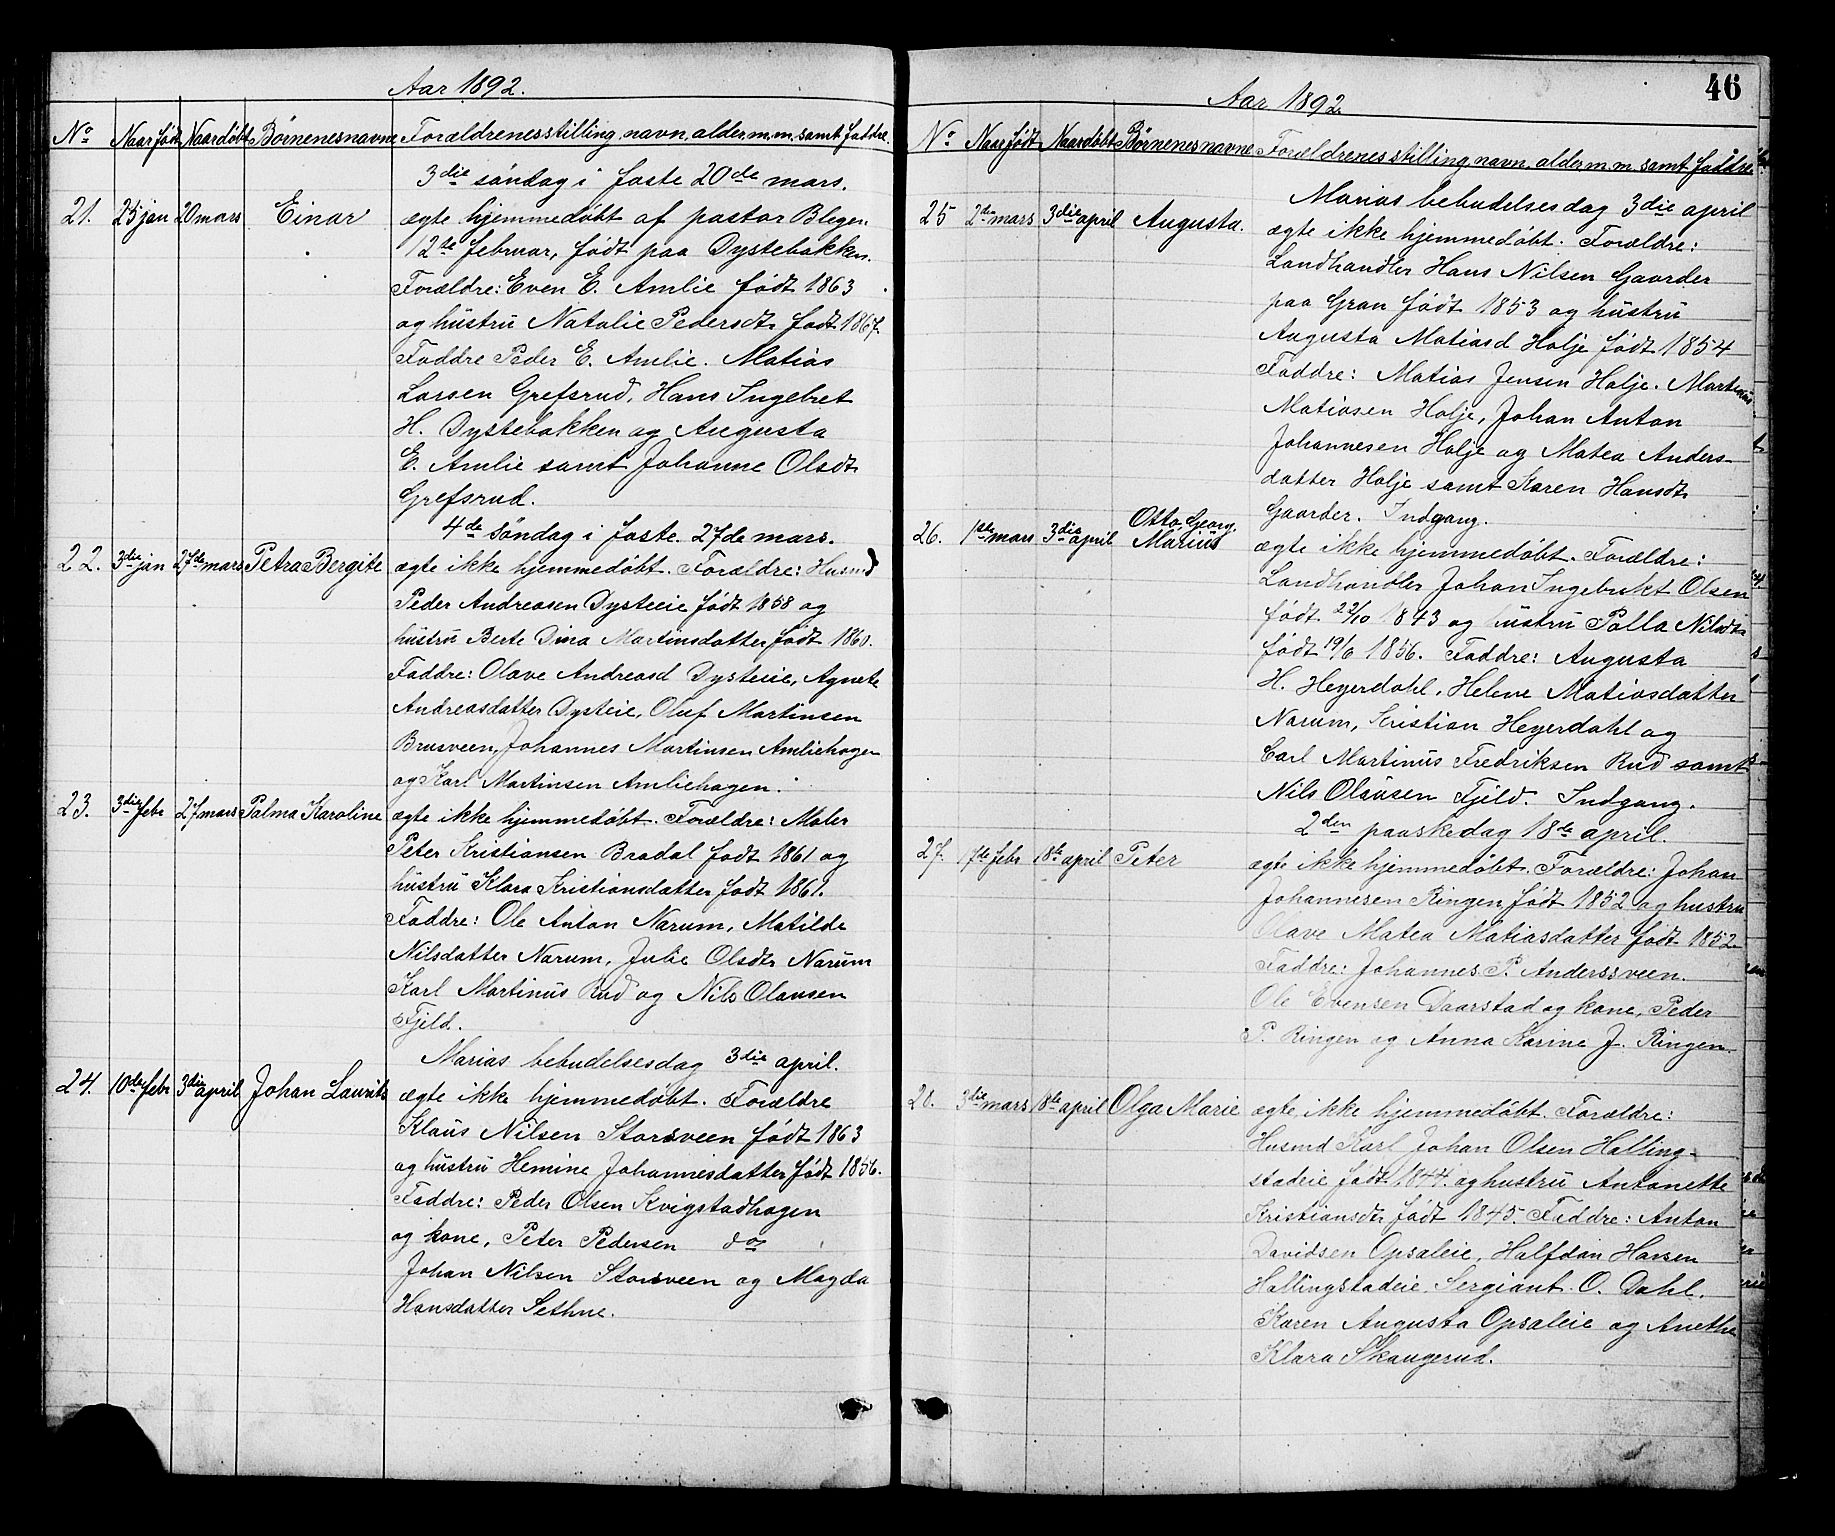 Aar 1892.
No Naar født Naar døbt Børnenes navne Forældrenes stilling, navn, alder m.m. samt faddre.
3die søndag i faste 20de mars.
21. 25 jan 20 mars Einar ægte hjemmedøbt af pastor Blegen
12te februar, født paa Dystebakken.
Forældre: Even E. Amlie født 1863
og hustru Natalie Pedersdtr født 1867.
Faddre Peder E. Amlie. Matias
Larsen Grefsrud, Hans Ingebret
H. Dystebakken og Augusta
E. Amlie samt Johanne Olsdt
Grefsrud.
4de søndag i faste 27de mars.
22. 3die jan 27de mars Petra Bergite ægte ikke hjemmedøbt. Forældre: Husmd
Peder Andreasen Dysteeie født 1858 og
hustru Berte Dina Martinsdatter født 1860.
Faddre: Olave Andreasd Dysteeie, Agnete
Andreasdatter Dysteie, Oluf Martinsen
Brusveen, Johannes Martinsen Amliehagen
og Karl Martinsen Amliehagen.
23. 3die febr 27 mars Palma Karoline ægte ikke hjemmedøbt. Forældre: Maler
Peter Kristiansen Bradal født 1861 og
hustru Klara Kristiansdatter født 1861.
Faddre: Ole Anton Narum, Matilde
Nilsdatter Narum, Julie Olsdtr Narum
Karl Martinus Rud og Nils Olausen
Fjeld.
Marias bebudelsesdag 3die april.
24. 10de febr 3die april Johan Laurits ægte ikke hjemmedøbt. Forældre
Klaus Nilsen Storsveen født 1863
og hustru Hemine Johannesdatter født 1856.
Faddre: Peder Olsen Kvigstadhagen
og kone, Peter Pedersen dos
Johan Nilsen Storsveen og Magda
Hansdatter Sethne.
46
Aar 1892.
No Naar født Naar døbt Børnenes navne Forældrenes stilling, navn, alder m.m. samt faddre
Marias bebudelsesdag 3die april
25 2de mars 3die april Augusta. ægte ikke hjemmedøbt. Forældre:
Landhandler Hans Nilsen Gaarder
paa Gran født 1853 og hustru
Augusta Matiasd Holje født 1854
Faddre: Matias Jensen Holje. Martinius
Matiasen Holje, Johan Anton
Johannesen Holje og Matea Anders-
datter Holje samt Karen Hansdtr
Gaarder. Indgang.
26. 1ste mars 3die april Otto Georg Marius
ægte ikke hjemmedøbt. Forældre:
Landhandler Johan Ingebrekt Olsen
født 22/10 1843 og hustru Palla Nilsdtr
født 19/6 1856. Faddre: Augusta
H. Heyerdahl, Helene Matiasdatter
Narum, Kristian Heyerdahl og
Carl Martinus Fredriksen Rud samt
Nils Olausen Fjeld. Indgang.
2den paaskedag 18de april.
27. 17de febr 18de april Peter ægte ikke hjemmedøbt. Forældre: Johan
Johannesen Ringen født 1852 og hustru
Olave Matea Matiasdatter født 1852
Faddre: Johannes P. Anderssveen.
Ole Evensen Daarstad og kone, Peder
P. Ringen og Anna Karine J. Ringen.
28. 3die mars 18de april Olga Marie ægte ikke hjemmedøbt. Forældre:
Husmd Karl Johan Olsen Halling-
stadeie født 1844. og hustru Antonette
Kristiansdtr født 1845. Faddre: Anton
Davidsen Opsaleie, Halfdan Hansen
Hallingstadeie. Sergiant. O. Dahl.
Karen Augusta Opsaleie og Anethe
Klara Skaugerud.